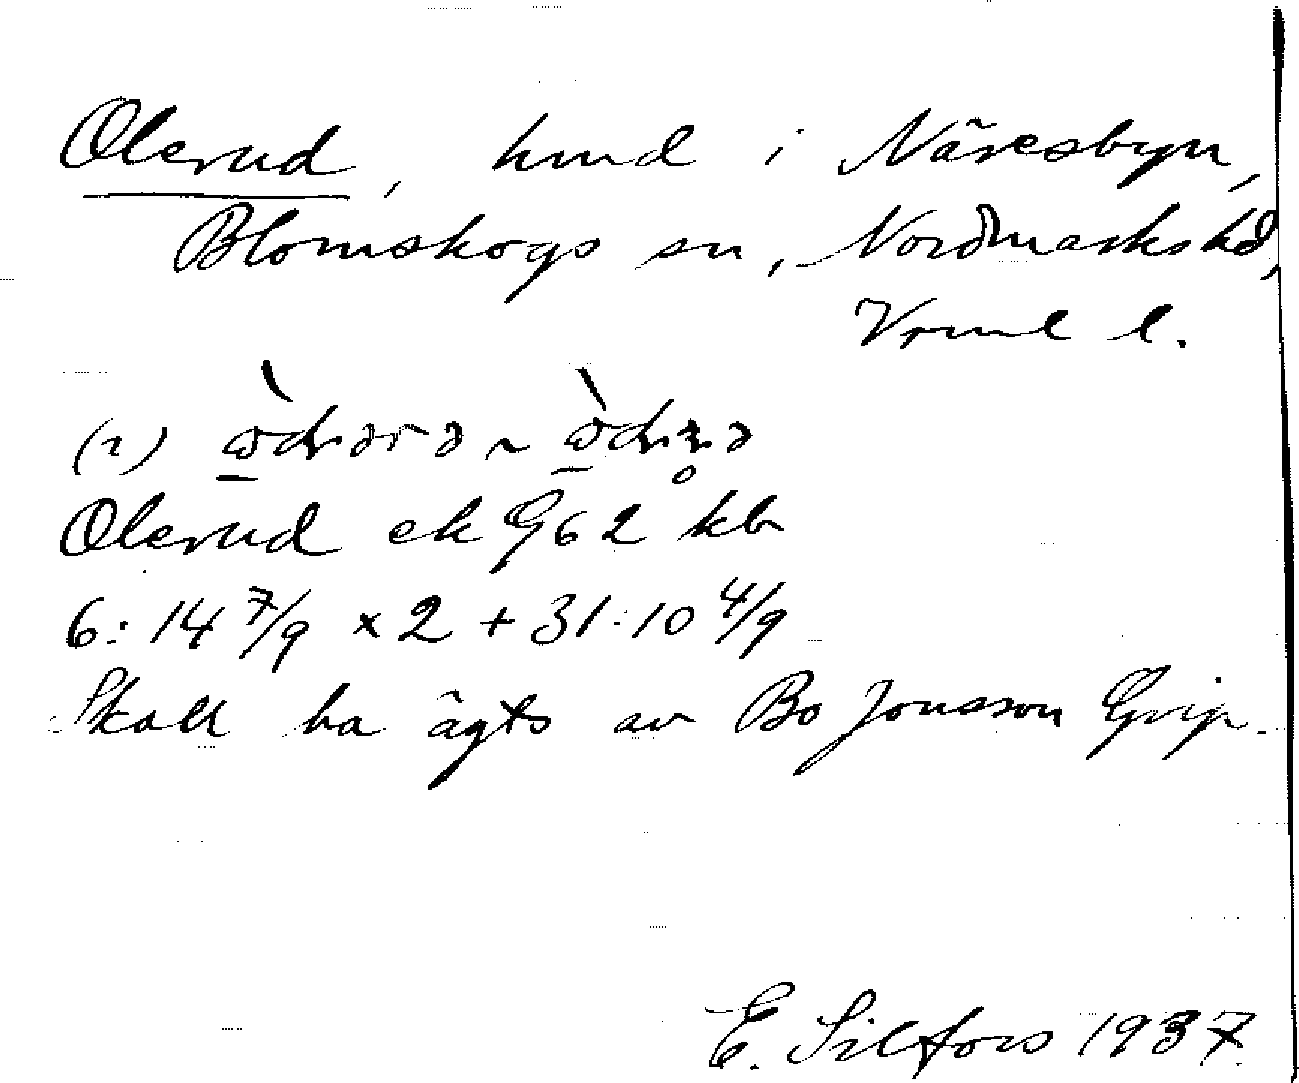 Olerud, hmd i Näresbyn,
Blomskogs sn, Nordmarks hd,
Vrml l.
Olerud ek G62 kb
6:14 7/9 x 2 + 31:10 4/9
Skall ha ägts av Bo Jonsson Grip.
E. Silfors 1937